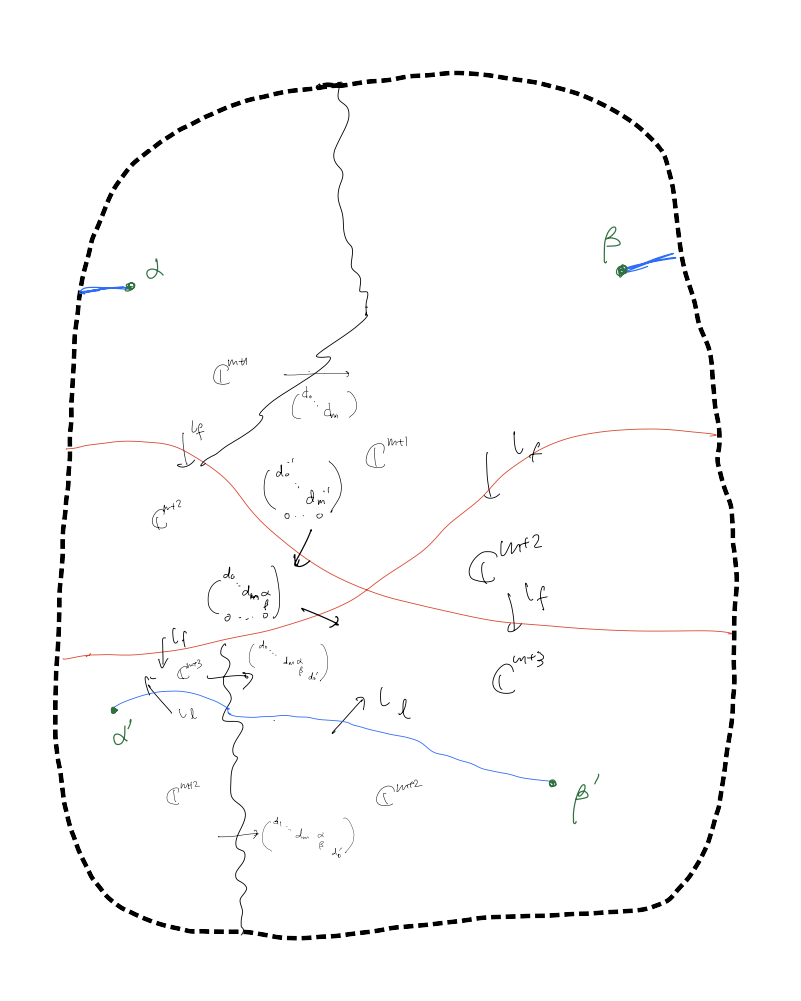 α
β
ℂ^{m+1}
(d₀ ⋱ d_m)
ι_f
ℂ^{m+1}
ι_f
(d₀⁻¹ ⋱ d_m⁻¹ 0 ... 0)
ℂ^{m+2}
ℂ^{m+2}
(d₀ ⋱ d_m α β 0 ... 0)
ι_f
ι_f
ℂ^{m+3}
(d₀ ⋱ d_m α β d₀')
ℂ^{m+3}
ι_l
ι_l
α'
β'
ℂ^{m+2}
ℂ^{m+2}
(d₁ ⋱ d_m α β d₀')